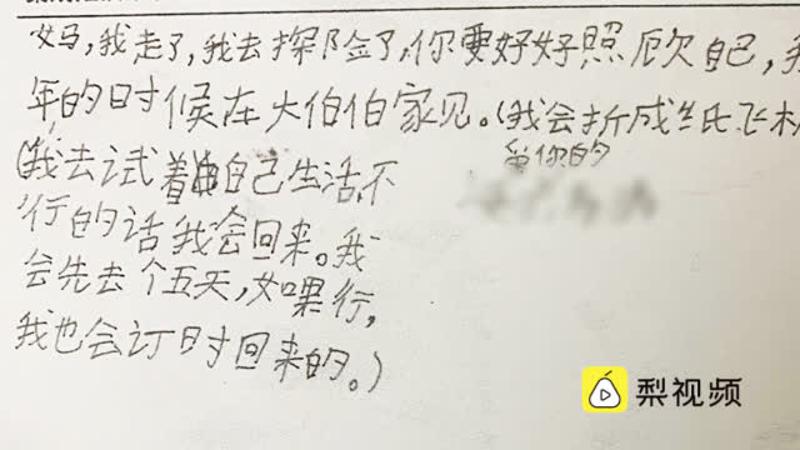 妈,我走了,我去探险了,你要好好照顾自己,我
年的时候在大伯伯家见。(我会折成纸飞机
爱你的
(我去试着自己生活,不
行的话我会回来。我
会先去个五天,如果行,
我也会订时回来的。)
梨视频